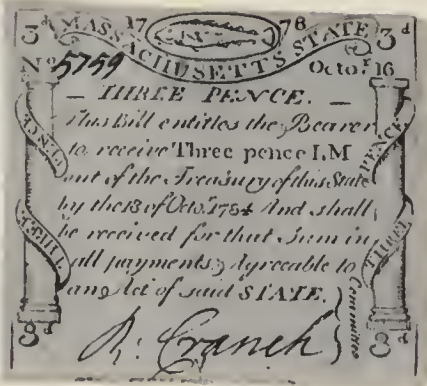 3d 17 78 3d
MASSACHUSETTS STATE
No 5759 Octor. 16
THREE PENCE.
This Bill entitles the Bearer
to receive Three pence LM
out of the Treasury of this State
by the 18 of Octo.r 1784 And shall
be received for that Sum in
all payments, Agreeable to
an Act of said STATE.
THREE PENCE
THREE PENCE
Committee
R: Cranch
3d 3d